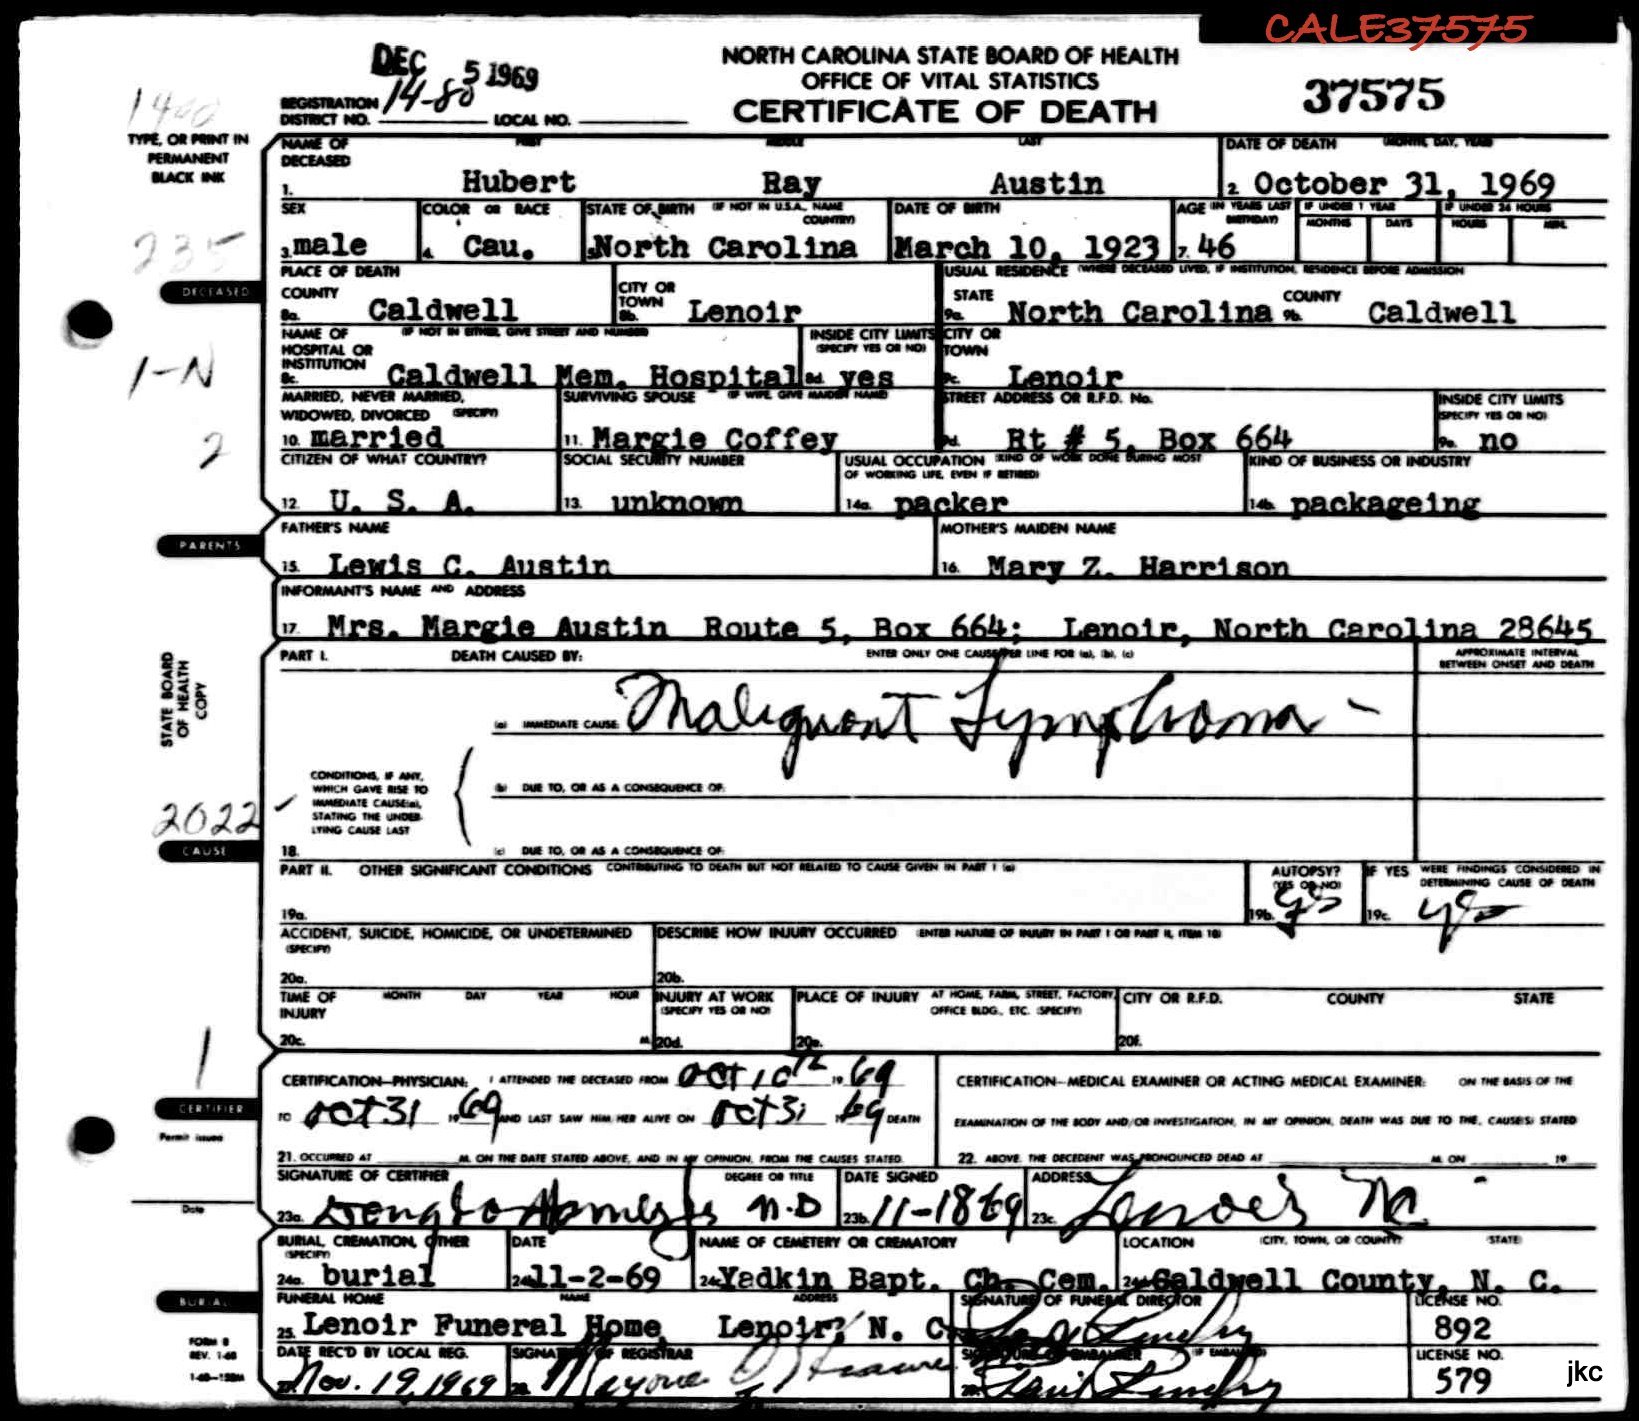 CALE37575
DEC 5 1969
NORTH CAROLINA STATE BOARD OF HEALTH
OFFICE OF VITAL STATISTICS
CERTIFICATE OF DEATH
37575
REGISTRATION DISTRICT NO. 14-80 LOCAL NO.
TYPE, OR PRINT IN PERMANENT BLACK INK
NAME OF DECEASED FIRST MIDDLE LAST
1. Hubert Ray Austin
DATE OF DEATH (MONTH, DAY, YEAR)
2. October 31, 1969
SEX
3. male
COLOR OR RACE
4. Cau.
STATE OF BIRTH (IF NOT IN U.S.A., NAME COUNTRY)
5. North Carolina
DATE OF BIRTH
March 10, 1923
AGE (IN YEARS LAST BIRTHDAY)
7. 46
IF UNDER 1 YEAR
MONTHS DAYS
IF UNDER 24 HOURS
HOURS MIN.
235
DECEASED
PLACE OF DEATH
COUNTY
8a. Caldwell
CITY OR TOWN
8b. Lenoir
USUAL RESIDENCE (WHERE DECEASED LIVED, IF INSTITUTION, RESIDENCE BEFORE ADMISSION
STATE
9a. North Carolina
COUNTY
9b. Caldwell
NAME OF HOSPITAL OR INSTITUTION (IF NOT IN EITHER, GIVE STREET AND NUMBER)
8c. Caldwell Mem. Hospital
INSIDE CITY LIMITS (SPECIFY YES OR NO)
8d. yes
CITY OR TOWN
9c. Lenoir
1-N
MARRIED, NEVER MARRIED, WIDOWED, DIVORCED (SPECIFY)
10. married
SURVIVING SPOUSE (IF WIFE, GIVE MAIDEN NAME)
11. Margie Coffey
STREET ADDRESS OR R.F.D. No.
9d. Rt # 5, Box 664
INSIDE CITY LIMITS (SPECIFY YES OR NO)
9e. no
2
CITIZEN OF WHAT COUNTRY?
12. U. S. A.
SOCIAL SECURITY NUMBER
13. unknown
USUAL OCCUPATION (KIND OF WORK DONE DURING MOST OF WORKING LIFE, EVEN IF RETIRED)
14a. packer
KIND OF BUSINESS OR INDUSTRY
14b. packageing
PARENTS
FATHER'S NAME
15. Lewis C. Austin
MOTHER'S MAIDEN NAME
16. Mary Z. Harrison
INFORMANT'S NAME AND ADDRESS
17. Mrs. Margie Austin Route 5, Box 664; Lenoir, North Carolina 28645
STATE BOARD OF HEALTH COPY
PART I. DEATH CAUSED BY: ENTER ONLY ONE CAUSE PER LINE FOR (a), (b), (c)
APPROXIMATE INTERVAL BETWEEN ONSET AND DEATH
(a) IMMEDIATE CAUSE: Malignant Lymphoma -
CONDITIONS, IF ANY, WHICH GAVE RISE TO IMMEDIATE CAUSE(a), STATING THE UNDERLYING CAUSE LAST
(b) DUE TO, OR AS A CONSEQUENCE OF:
2022 ✓
CAUSE
18. (c) DUE TO, OR AS A CONSEQUENCE OF:
PART II. OTHER SIGNIFICANT CONDITIONS CONTRIBUTING TO DEATH BUT NOT RELATED TO CAUSE GIVEN IN PART I (a)
19a.
AUTOPSY? (YES OR NO)
19b. yes
IF YES WERE FINDINGS CONSIDERED IN DETERMINING CAUSE OF DEATH
19c. yes
ACCIDENT, SUICIDE, HOMICIDE, OR UNDETERMINED (SPECIFY)
20a.
DESCRIBE HOW INJURY OCCURRED (ENTER NATURE OF INJURY IN PART I OR PART II, ITEM 18)
20b.
TIME OF INJURY MONTH DAY YEAR HOUR
20c. M.
INJURY AT WORK (SPECIFY YES OR NO)
20d.
PLACE OF INJURY AT HOME, FARM, STREET, FACTORY, OFFICE BLDG., ETC. (SPECIFY)
20e.
CITY OR R.F.D. COUNTY STATE
20f.
1
CERTIFIER
CERTIFICATION—PHYSICIAN: I ATTENDED THE DECEASED FROM Oct 10th 19 69
TO Oct 31 19 69 AND LAST SAW HIM/HER ALIVE ON Oct 31 19 69 DEATH
21. OCCURRED AT M. ON THE DATE STATED ABOVE, AND IN MY OPINION, FROM THE CAUSES STATED.
CERTIFICATION—MEDICAL EXAMINER OR ACTING MEDICAL EXAMINER: ON THE BASIS OF THE
EXAMINATION OF THE BODY AND/OR INVESTIGATION, IN MY OPINION, DEATH WAS DUE TO THE, CAUSE(S) STATED
22. ABOVE. THE DECEDENT WAS PRONOUNCED DEAD AT M. ON 19
Permit issued
Date
SIGNATURE OF CERTIFIER DEGREE OR TITLE
23a. M.D
DATE SIGNED
23b. 11-18 69
ADDRESS
23c. Lenoir NC
BURIAL, CREMATION, OTHER (SPECIFY)
24a. burial
DATE
24b. 11-2-69
NAME OF CEMETERY OR CREMATORY
24c. Yadkin Bapt. Ch. Cem.
LOCATION (CITY, TOWN, OR COUNTY) (STATE)
24d. Caldwell County, N. C.
BURIAL
FUNERAL HOME NAME ADDRESS
25. Lenoir Funeral Home, Lenoir, N. C.
SIGNATURE OF FUNERAL DIRECTOR
LICENSE NO.
892
FORM 8
REV. 1-68
DATE REC'D BY LOCAL REG.
27. Nov. 19, 1969
SIGNATURE OF REGISTRAR
28.
SIGNATURE OF EMBALMER (IF EMBALMED)
LICENSE NO.
579
jkc